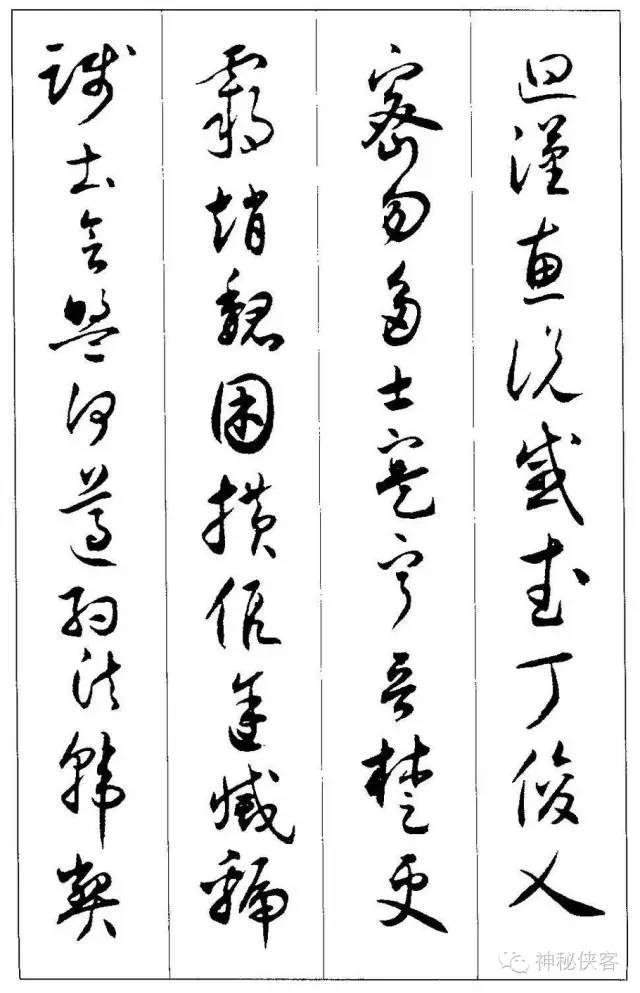 迴漢惠說感武丁俊乂
密勿多士寔寧晉楚更
霸趙魏困橫假途滅虢
踐土會盟何遵約法韓弊
神秘侠客